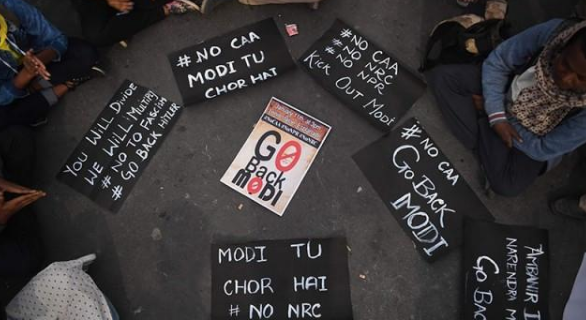 # NO CAA
MODI TU
CHOR HAI
# NO CAA
# NO NRC
# NO NPR
Kick Out Modi
You Will Divide
WE WILL MULTIPLY
# NO TO FASCISM
# GO BACK HITLER
GO
Back
MODI
# NO CAA
GO BACK
MODI
MODI TU
CHOR HAI
# NO NRC
NARENDRA M
GO BACK